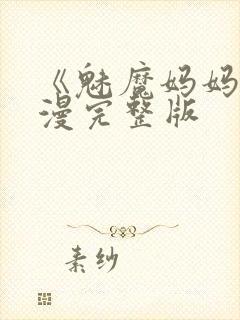 《魅魔妈妈
漫完整版
素纱